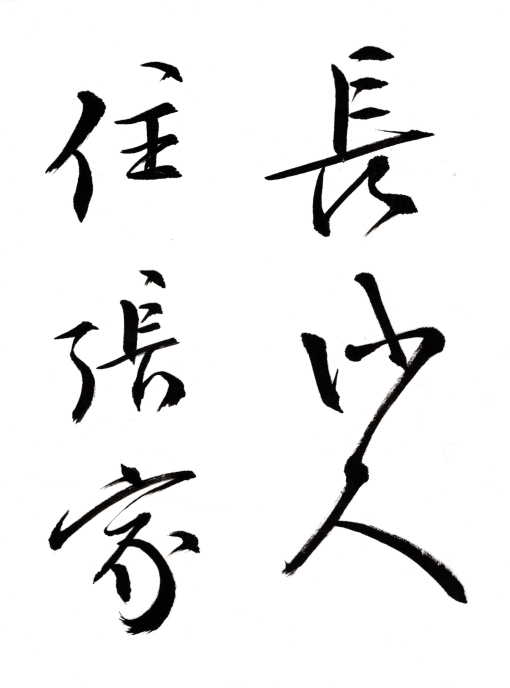 長沙人
住張家